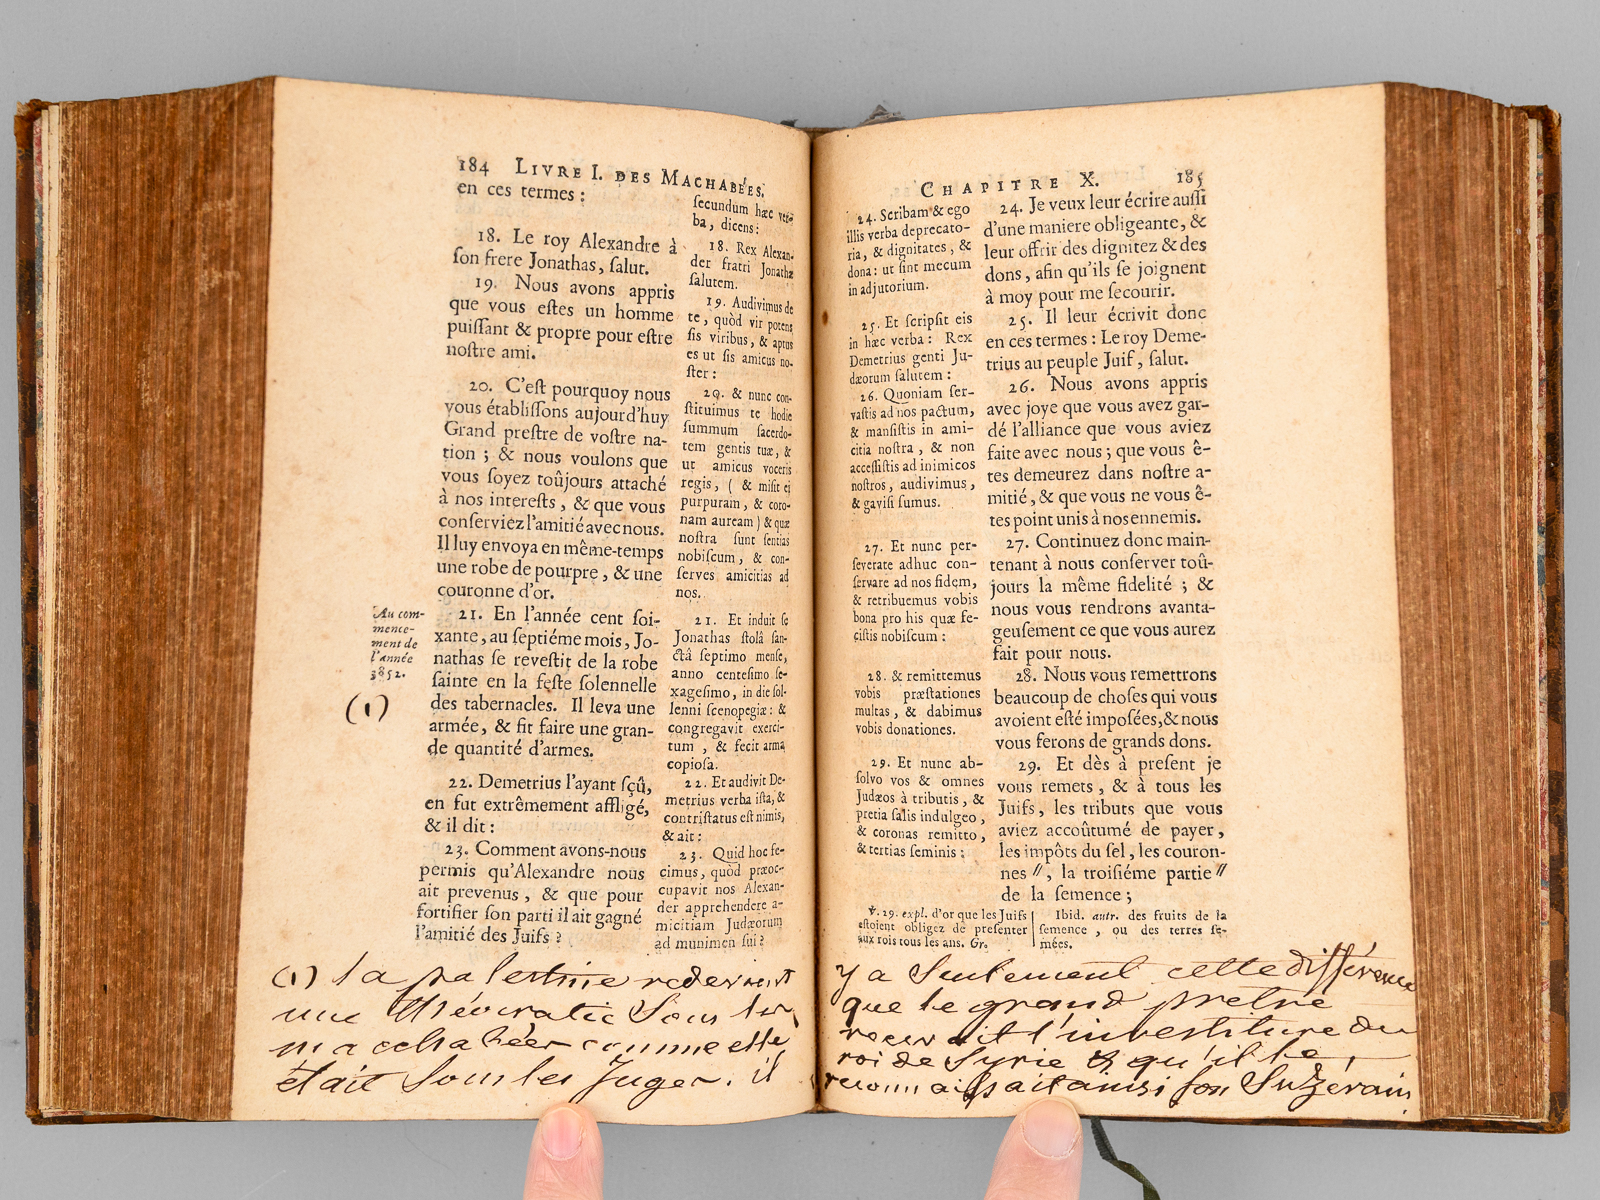 184 LIVRE I. DES MACHABÉES.
en ces termes :
18. Le roy Alexandre à
ſon frere Jonathas, ſalut.
19. Nous avons appris
que vous eſtes un homme
puiſſant & propre pour eſtre
noſtre ami.
20. C'eſt pourquoy nous
vous établiſſons aujourd'huy
Grand preſtre de voſtre na-
tion ; & nous voulons que
vous ſoyez toûjours attaché
à nos intereſts, & que vous
conſerviez l'amitié avec nous.
Il luy envoya en même-temps
une robe de pourpre, & une
couronne d'or.
21. En l'année cent ſoi-
xante, au ſeptiéme mois, Jo-
nathas ſe reveſtit de la robe
ſainte en la feſte ſolennelle
des tabernacles. Il leva une
armée, & fit faire une gran-
de quantité d'armes.
22. Demetrius l'ayant ſçû,
en fut extrêmement affligé,
& il dit :
23. Comment avons-nous
permis qu'Alexandre nous
ait prevenus, & que pour
fortifier ſon parti il ait gagné
l'amitié des Juifs ?
Au com-
mence-
ment de
l'année
3852.
(1)
ſecundum hæc ver-
ba, dicens :
18. Rex Alexan-
der fratri Jonathæ
ſalutem.
19. Audivimus de
te, quòd vir potens
ſis viribus, & aptus
es ut ſis amicus no-
ſter :
20. & nunc con-
ſtituimus te hodie
ſummum ſacerdo-
tem gentis tuæ, &
ut amicus voceris
regis, ( & miſit ei
purpuram, & coro-
nam auream ) & quæ
noſtra ſunt ſentias
nobiſcum, & con-
ſerves amicitias ad
nos.
21. Et induit ſe
Jonathas ſtolâ ſan-
ctâ ſeptimo menſe,
anno centeſimo ſe-
xageſimo, in die ſol-
lenni ſcenopegiæ : &
congregavit exerci-
tum, & fecit arma
copioſa.
22. Et audivit De-
metrius verba iſta, &
contriſtatus eſt nimis,
& ait :
23. Quid hoc fe-
cimus, quòd præoc-
cupavit nos Alexan-
der apprehendere a-
micitiam Judæorum
ad munimen ſui ?
(1) la palestine redevient
une théocratie Sous les
macchabées comme elle
était Sous les Juges. il
CHAPITRE X. 185
24. Scribam & ego
illis verba deprecato-
ria, & dignitates, &
dona : ut ſint mecum
in adjutorium.
25. Et ſcripſit eis
in hæc verba : Rex
Demetrius genti Ju-
dæorum ſalutem :
26. Quoniam ſer-
vaſtis ad nos pactum,
& manſiſtis in ami-
citia noſtra, & non
acceſſiſtis ad inimicos
noſtros, audivimus,
& gaviſi ſumus.
27. Et nunc per-
ſeverate adhuc con-
ſervare ad nos fidem,
& retribuemus vobis
bona pro his quæ fe-
ciſtis nobiſcum :
28. & remittemus
vobis præſtationes
multas, & dabimus
vobis donationes.
29. Et nunc ab-
ſolvo vos & omnes
Judæos à tributis, &
pretia ſalis indulgeo,
& coronas remitto,
& tertias ſeminis :
24. Je veux leur écrire auſſi
d'une maniere obligeante, &
leur offrir des dignitez & des
dons, afin qu'ils ſe joignent
à moy pour me ſecourir.
25. Il leur écrivit donc
en ces termes : Le roy Deme-
trius au peuple Juif, ſalut.
26. Nous avons appris
avec joye que vous avez gar-
dé l'alliance que vous aviez
faite avec nous ; que vous ê-
tes demeurez dans noſtre a-
mitié, & que vous ne vous ê-
tes point unis à nos ennemis.
27. Continuez donc main-
tenant à nous conſerver toû-
jours la même fidelité ; &
nous vous rendrons avanta-
geuſement ce que vous aurez
fait pour nous.
28. Nous vous remettrons
beaucoup de choſes qui vous
avoient eſté impoſées, & nous
vous ferons de grands dons.
29. Et dès à preſent je
vous remets, & à tous les
Juifs, les tributs que vous
aviez accoûtumé de payer,
les impôts du ſel, les couron-
nes ", la troiſiéme partie "
de la ſemence ;
℣. 29. expl. d'or que les Juifs
eſtoient obligez de preſenter
aux rois tous les ans. Gr.
Ibid. autr. des fruits de la
ſemence, ou des terres ſe-
mées.
y a Seulement cette différence
que le grand prêtre
recevait l'investiture du
roi de Syrie & qu'il le
reconnaissait ainsi son Suzérain.